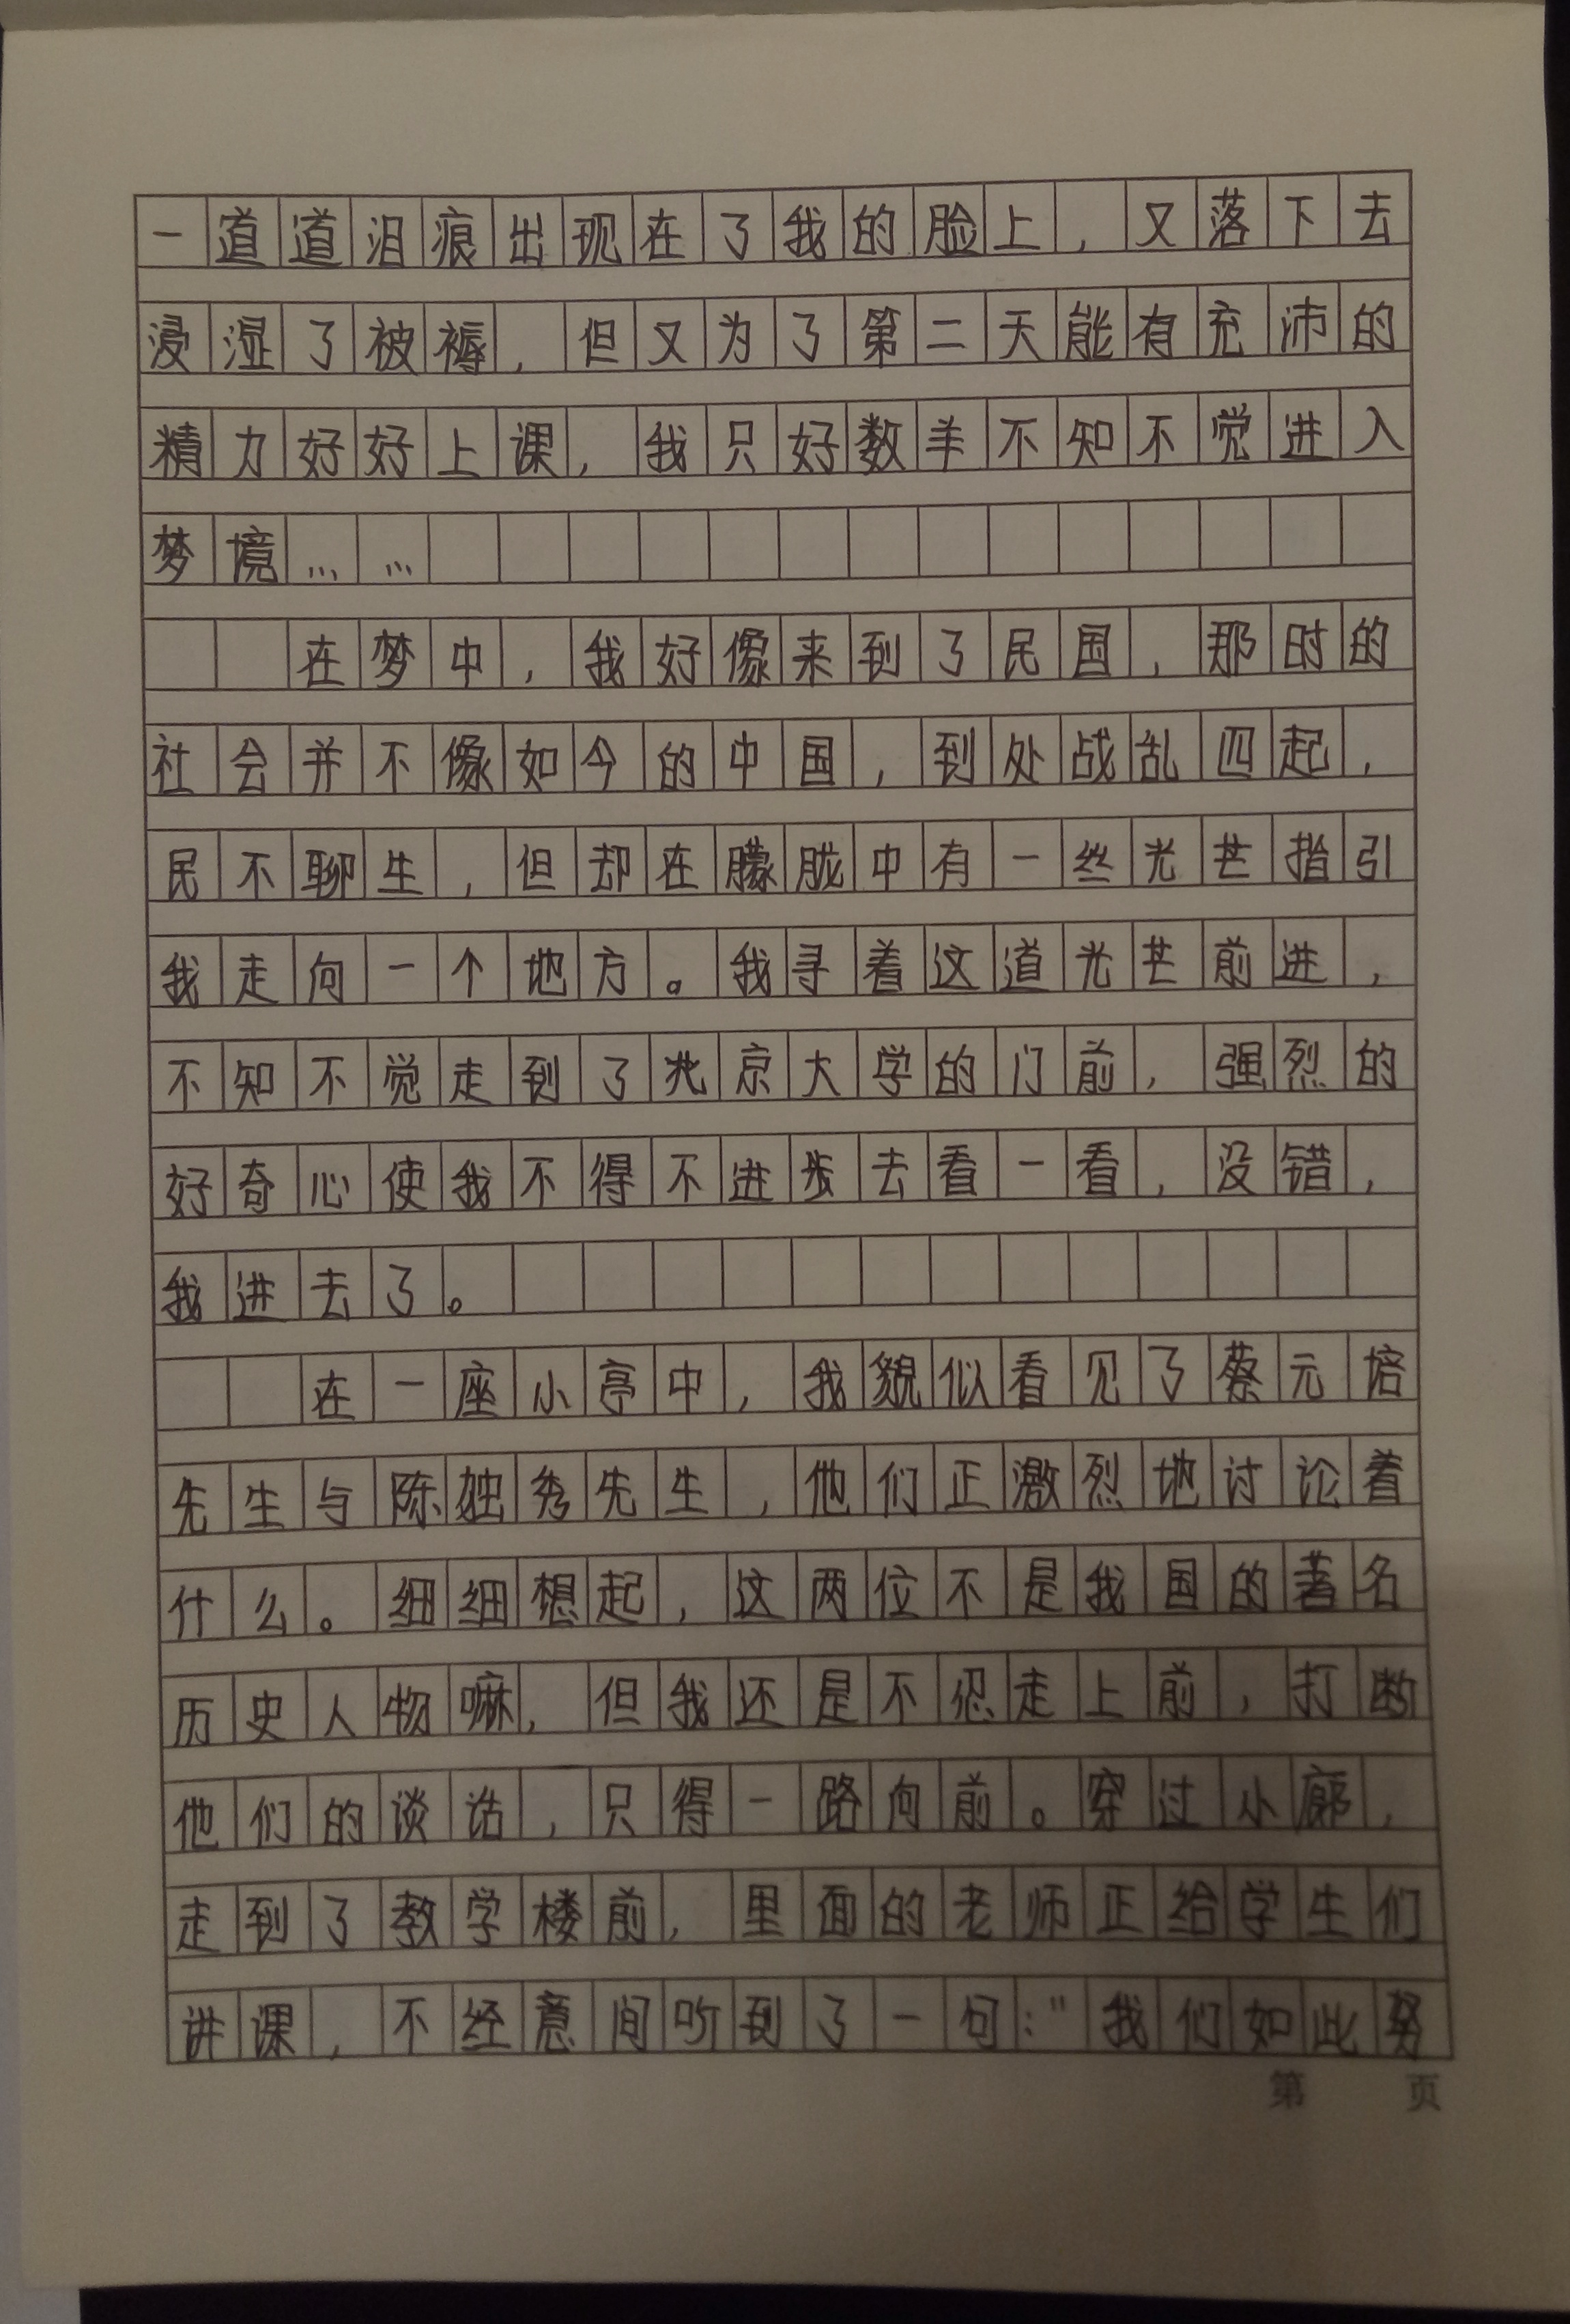 一道道泪痕出现在了我的脸上，又落下去
浸湿了被褥，但又为了第二天能有充沛的
精力好好上课，我只好数羊不知不觉进入
梦境……
在梦中，我好像来到了民国，那时的
社会并不像如今的中国，到处战乱四起，
民不聊生，但却在朦胧中有一丝光芒指引
我走向一个地方。我寻着这道光芒前进，
不知不觉走到了北京大学的门前，强烈的
好奇心使我不得不进步去看一看，没错，
我进去了。
在一座小亭中，我貌似看见了蔡元培
先生与陈独秀先生，他们正激烈地讨论着
什么。细细想起，这两位不是我国的著名
历史人物嘛，但我还是不忍走上前，打断
他们的谈话，只得一路向前。穿过小廊，
走到了教学楼前，里面的老师正给学生们
讲课，不经意间听到了一句："我们如此努
第 页